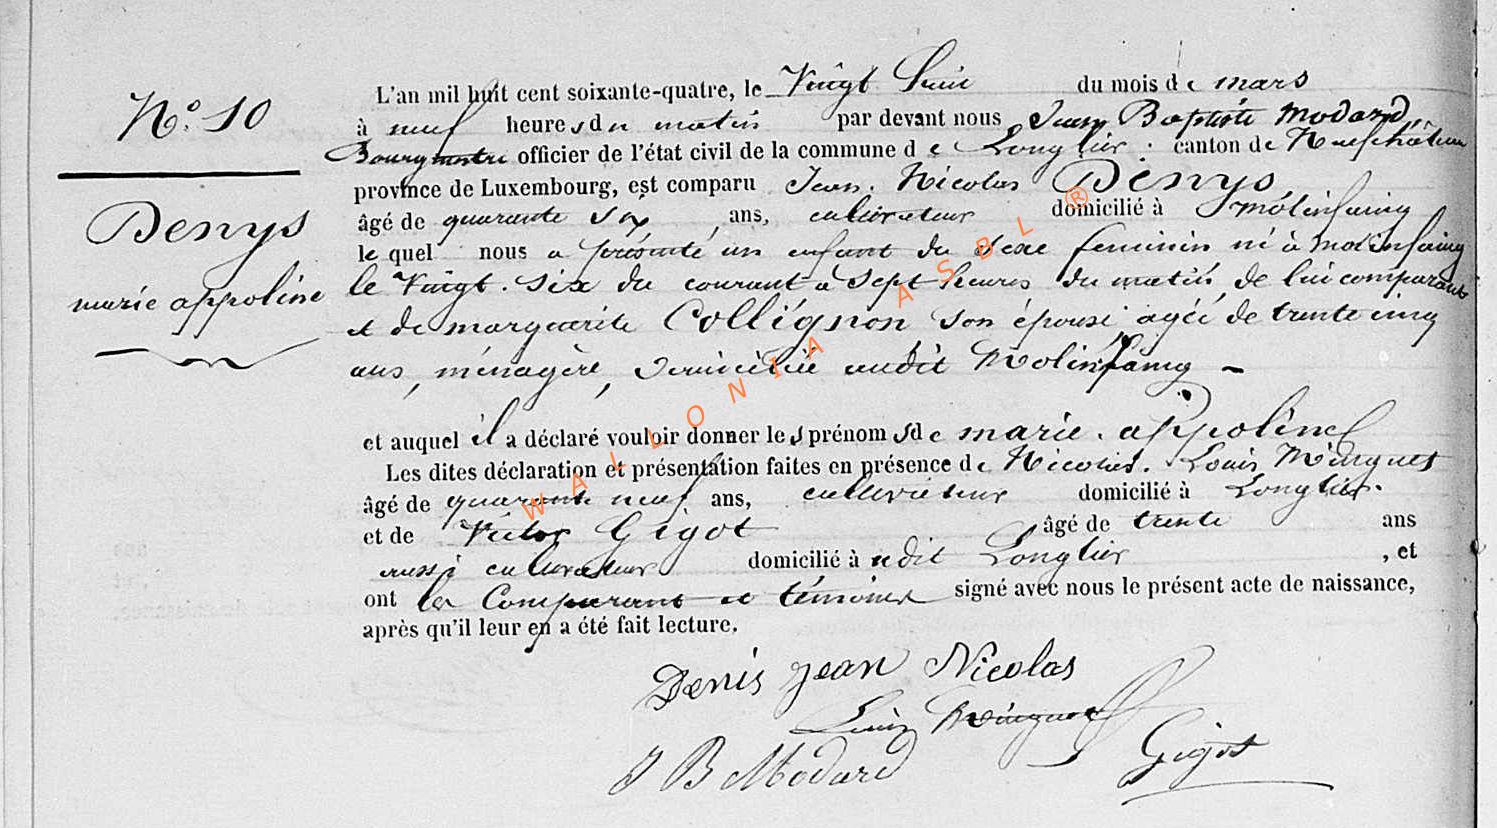 N° 10
Denys
marie appoline
L'an mil huit cent soixante-quatre, le Vingt huit du mois de mars
à neuf heures du matin par devant nous Jean Baptiste Modard,
Bourgmestre officier de l'état civil de la commune de Longlier. canton de Neufchâteau
province de Luxembourg, est comparu Jean. Nicolas Denys,
âgé de quarante six ans, cultivateur domicilié à molinfaing
le quel nous a présenté un enfant du sexe feminin né à molinfaing
le Vingt. six du courant à sept heures du matin, de lui comparant
et de marguerite Collignon son épouse agée de trente cinq
ans, ménagère, domiciliée audit Molinfaing -
et auquel il a déclaré vouloir donner les prénoms de marie. appoline
Les dites déclaration et présentation faites en présence de Nicolas. Louis
âgé de quarante neuf ans, cultivateur domicilié à Longlier.
et de Victor Gigot âgé de trente ans
aussi cultivateur domicilié à udit Longlier, et
ont les Comparant et témoins signé avec nous le présent acte de naissance,
après qu'il leur en a été fait lecture.
Denis jean Nicolas
Louis
J B Modard
Gigot
WALLONIA ASBL ®